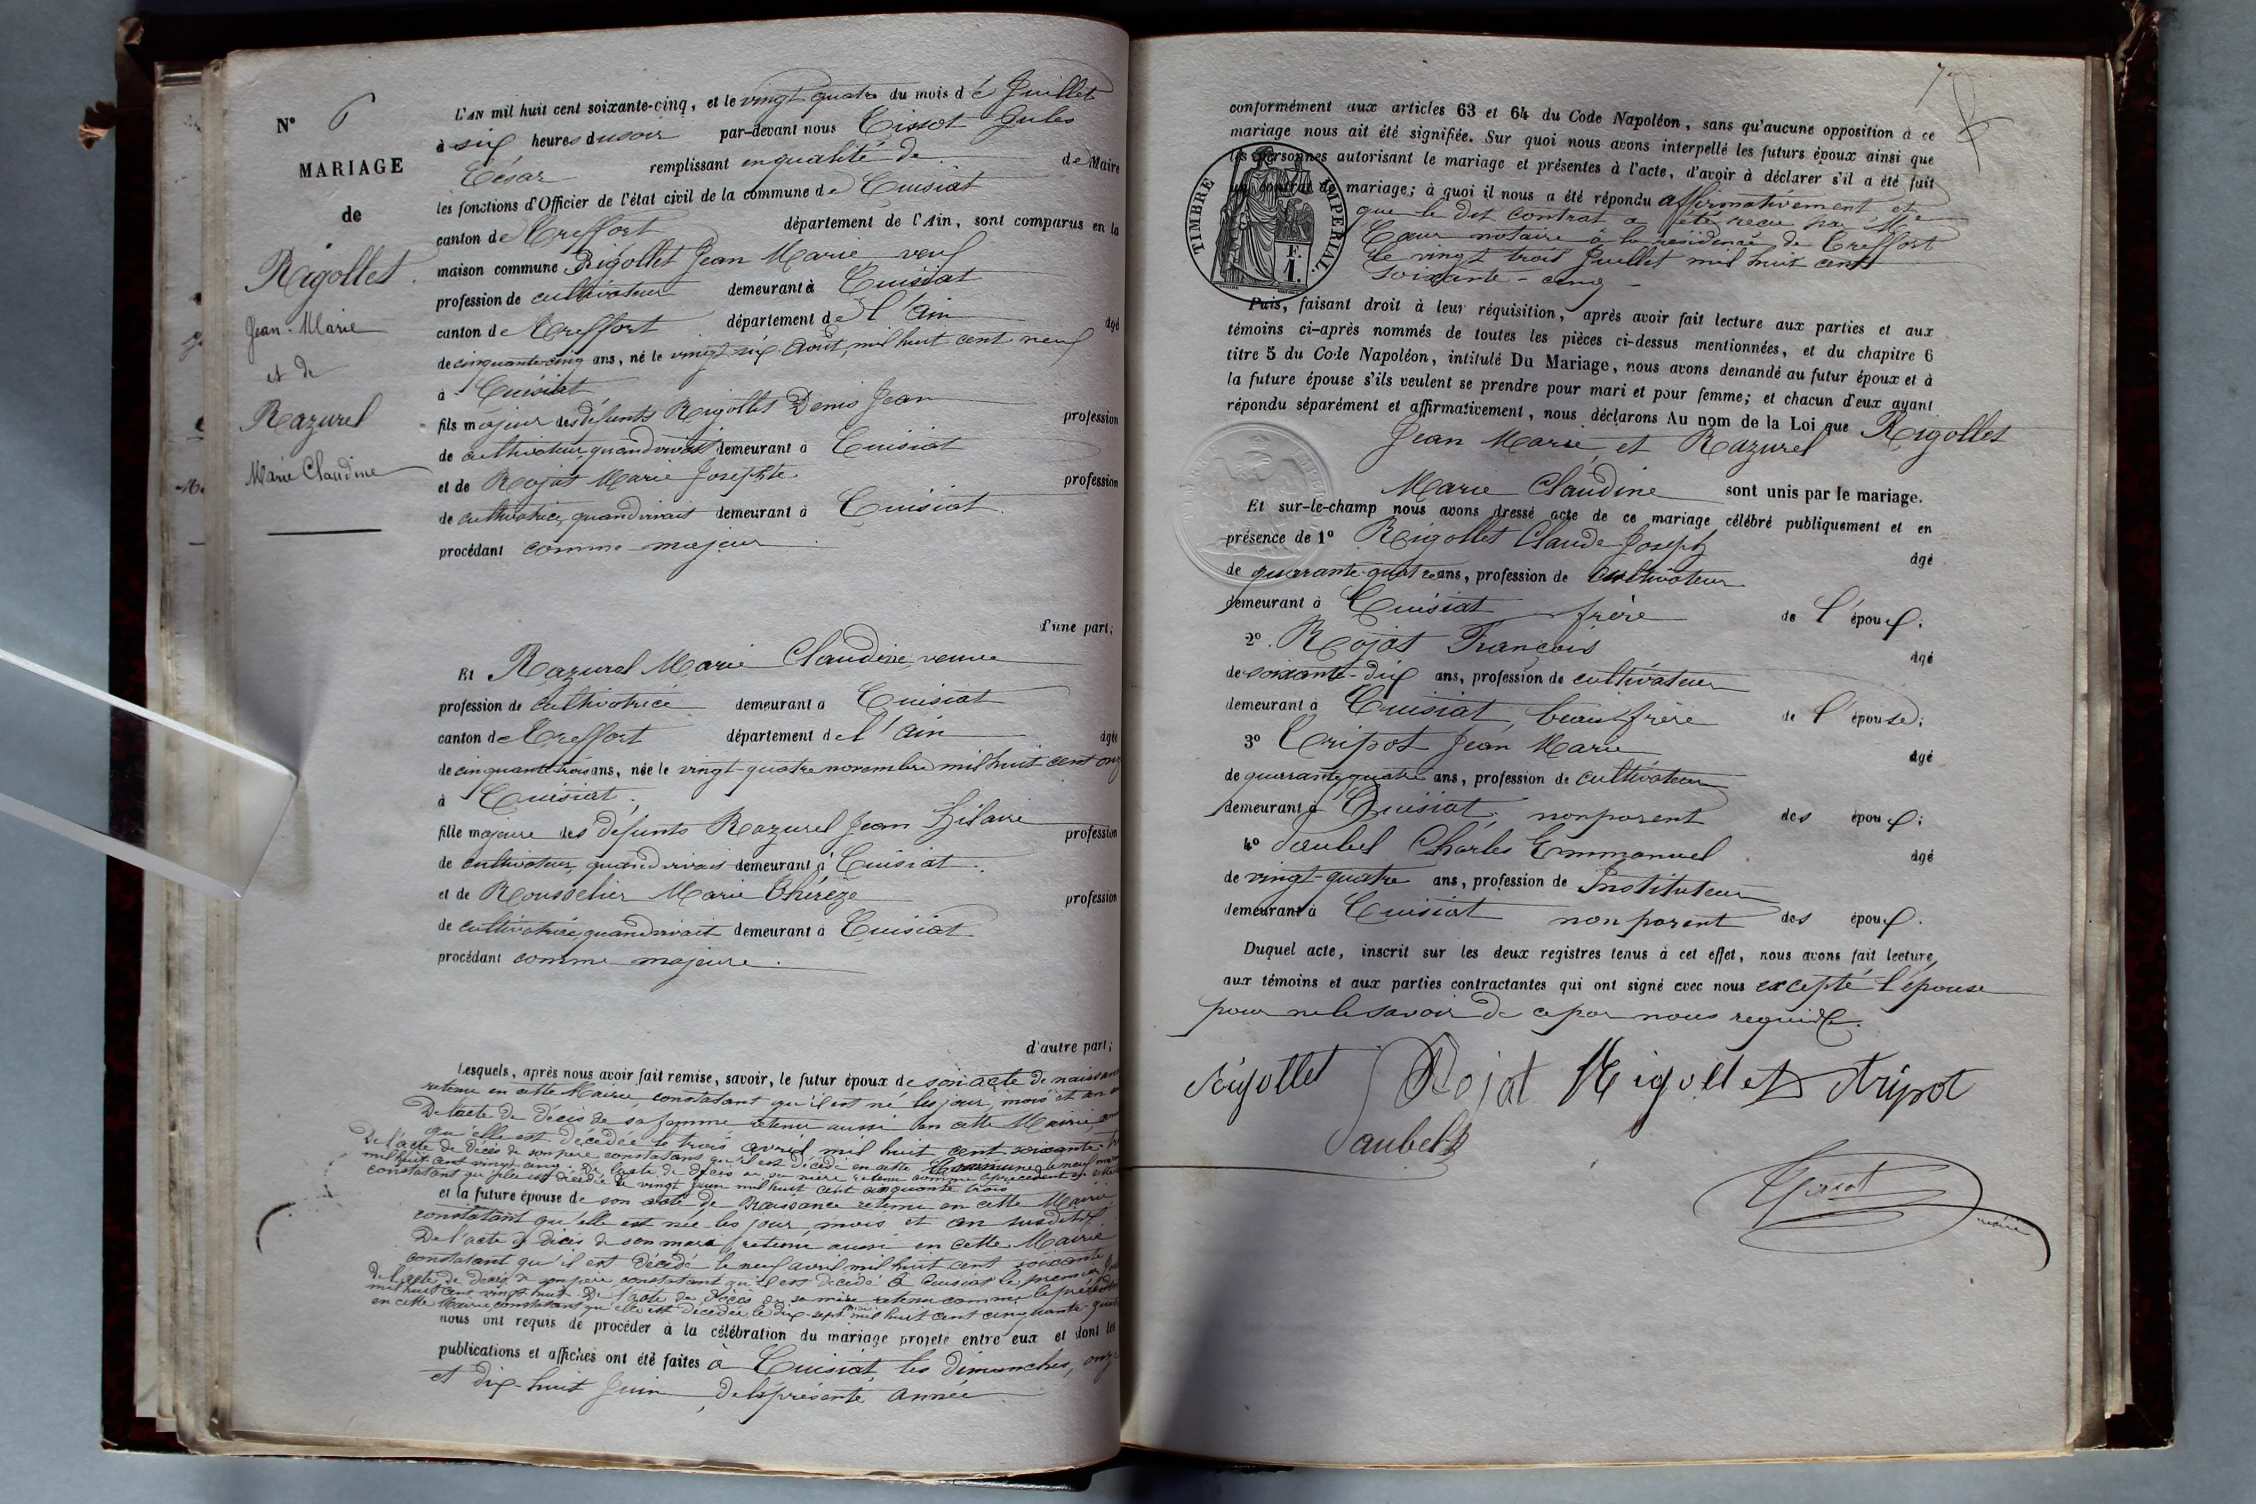 N° 6
MARIAGE
de
Rigollet
Jean-Marie
et de
Razurel
Marie Claudine
L'AN mil huit cent soixante-cinq, et le vingt quatre du mois de Juillet
à six heures du soir par-devant nous Tissot Jules
César remplissant en qualité de de Maire
les fonctions d'Officier de l'état civil de la commune de Cuisiat
canton de Treffort département de l'Ain, sont comparus en la
maison commune Rigollet Jean Marie veuf
profession de cultivateur demeurant à Cuisiat
canton de Treffort département de l'Ain âgé
de cinquante cinq ans, né le vingt six Août, mil huit cent neuf
à Cuisiat
fils majeur des défunts Rigollet Denis Jean profession
de cultivateur quand vivait demeurant à Cuisiat
et de Rojat Marie Josephte profession
de cultivatrice, quand vivait demeurant à Cuisiat.
procédant comme majeur
d'une part;
Et Razurel Marie Claudine veuve
profession de cultivatrice demeurant à Cuisiat
canton de Treffort département de l'Ain âgée
de cinquante trois ans, née le vingt-quatre novembre mil huit cent onz
à Cuisiat.
fille majeure des défunts Razurel Jean Hilaire profession
de cultivateur, quand vivait demeurant à Cuisiat.
et de Rousselier Marie Thérèze profession
de cultivatrice quand vivait demeurant à Cuisiat
procédant comme majeure.
d'autre part;
Lesquels, après nous avoir fait remise, savoir, le futur époux de son acte de naissan
retenu en cette Mairie constatant qu'il est né les jour, mois et an
De l'acte de décès de sa femme retenu aussi en cette Mairie,
qu'elle est décédée le trois avril mil huit cent soixante
De l'acte de décès de son père constatant qu'il est décédé en cette Commune le neuf
mil huit cent vingt cinq. De l'acte de décès de sa mère retenu comme le précédent
constatant qu'elle est décédée le vingt juin mil huit cent cinquante trois
et la future épouse de son acte de Naissance retenu en cette Mairie
constatant qu'elle est née les jour, mois et an susdits
De l'acte de décès de son mari retenu aussi en cette Mairie
constatant qu'il est décédé le neuf avril mil huit cent soixante
de l'acte de décès de son père constatant qu'il est décédé à Cuisiat le premier
mil huit cent vingt huit. De l'acte de décès de sa mère retenu comme le précédent
en cette Mairie constatant qu'elle est décédée le dix-sept mil huit cent cinquante
nous ont requis de procéder à la célébration du mariage projeté entre eux et dont les
publications et affiches ont été faites à Cuisiat, les dimanches, onze
et dix-huit Juin de la présente année
7
conformément aux articles 63 et 64 du Code Napoléon, sans qu'aucune opposition à ce
mariage nous ait été signifiée. Sur quoi nous avons interpellé les futurs époux ainsi que
les personnes autorisant le mariage et présentes à l'acte, d'avoir à déclarer s'il a été fait
un contrat de mariage; à quoi il nous a été répondu affirmativement et
que le dit contrat a été reçu par Me
Cœur notaire à la résidence de Treffort
le vingt trois Juillet mil huit cent
soixante-cinq -
TIMBRE IMPERIAL.
1 F.
Puis, faisant droit à leur réquisition, après avoir fait lecture aux parties et aux
témoins ci-après nommés de toutes les pièces ci-dessus mentionnées, et du chapitre 6
titre 5 du Code Napoléon, intitulé Du Mariage, nous avons demandé au futur époux et à
la future épouse s'ils veulent se prendre pour mari et pour femme; et chacun d'eux ayant
répondu séparément et affirmativement, nous déclarons Au nom de la Loi que Rigollet
Jean Marie, et Razurel
Marie Claudine sont unis par le mariage.
Et sur-le-champ nous avons dressé acte de ce mariage célébré publiquement et en
présence de 1° Rigollet Claude Joseph âgé
de quarante-quatre ans, profession de cultivateur
demeurant à Cuisiat frère de l'époux;
2° Rojat François âgé
de soixante-dix ans, profession de cultivateur
demeurant à Cuisiat, beau-frère de l'épouse;
3° Tripot Jean Marie âgé
de quarante quatre ans, profession de cultivateur
demeurant à Cuisiat, non parent des époux;
4° Jaubel Charles Emmanuel âgé
de vingt-quatre ans, profession de Instituteur
demeurant à Cuisiat non parent des époux.
Duquel acte, inscrit sur les deux registres tenus à cet effet, nous avons fait lecture
aux témoins et aux parties contractantes qui ont signé avec nous excepté l'épouse
pour ne le savoir de ce par nous requise.
Rigollet Rojat Rigollet Tripot
Jaubel
Tissot
maire